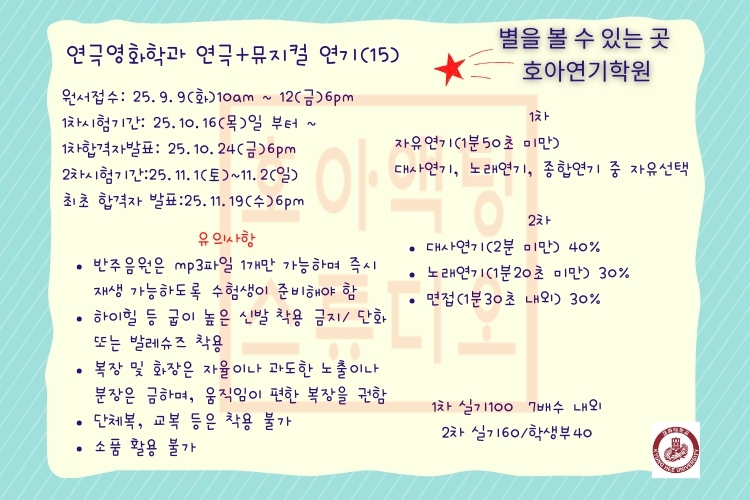 연극영화학과 연극+뮤지컬 연기(15)
별을 볼 수 있는 곳
호아연기학원
원서접수: 25.9.9(화)10am ~ 12(금)6pm
1차시험기간: 25.10.16(목)일 부터 ~
1차합격자발표: 25.10.24(금)6pm
2차시험기간:25.11.1(토)~11.2(일)
최초 합격자 발표:25.11.19(수)6pm
유의사항
• 반주음원은 mp3파일 1개만 가능하며 즉시
재생 가능하도록 수험생이 준비해야 함
• 하이힐 등 굽이 높은 신발 착용 금지/ 단화
또는 발레슈즈 착용
• 복장 및 화장은 자율이나 과도한 노출이나
분장은 금하며, 움직임이 편한 복장을 권함
• 단체복, 교복 등은 착용 불가
• 소품 활용 불가
1차
자유연기(1분50초 미만)
대사연기, 노래연기, 종합연기 중 자유선택
2차
• 대사연기(2분 미만) 40%
• 노래연기(1분20초 미만) 30%
• 면접(1분30초 내외) 30%
1차 실기100 7배수 내외
2차 실기60/학생부40
호아액팅
스튜디오
KYUNG HEE UNIVERSITY